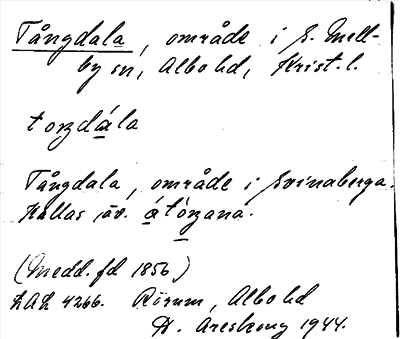 Tångdala, område i S. Mell-
by sn, Albo hd, Krist. l.
toꝛzdála
Tångdala, område i Svinaberga.
Kallas äv. átózana.
(Medd. fd 1856)
LAL 4266. Rörum, Albo hd
H. Areskoug 1944.